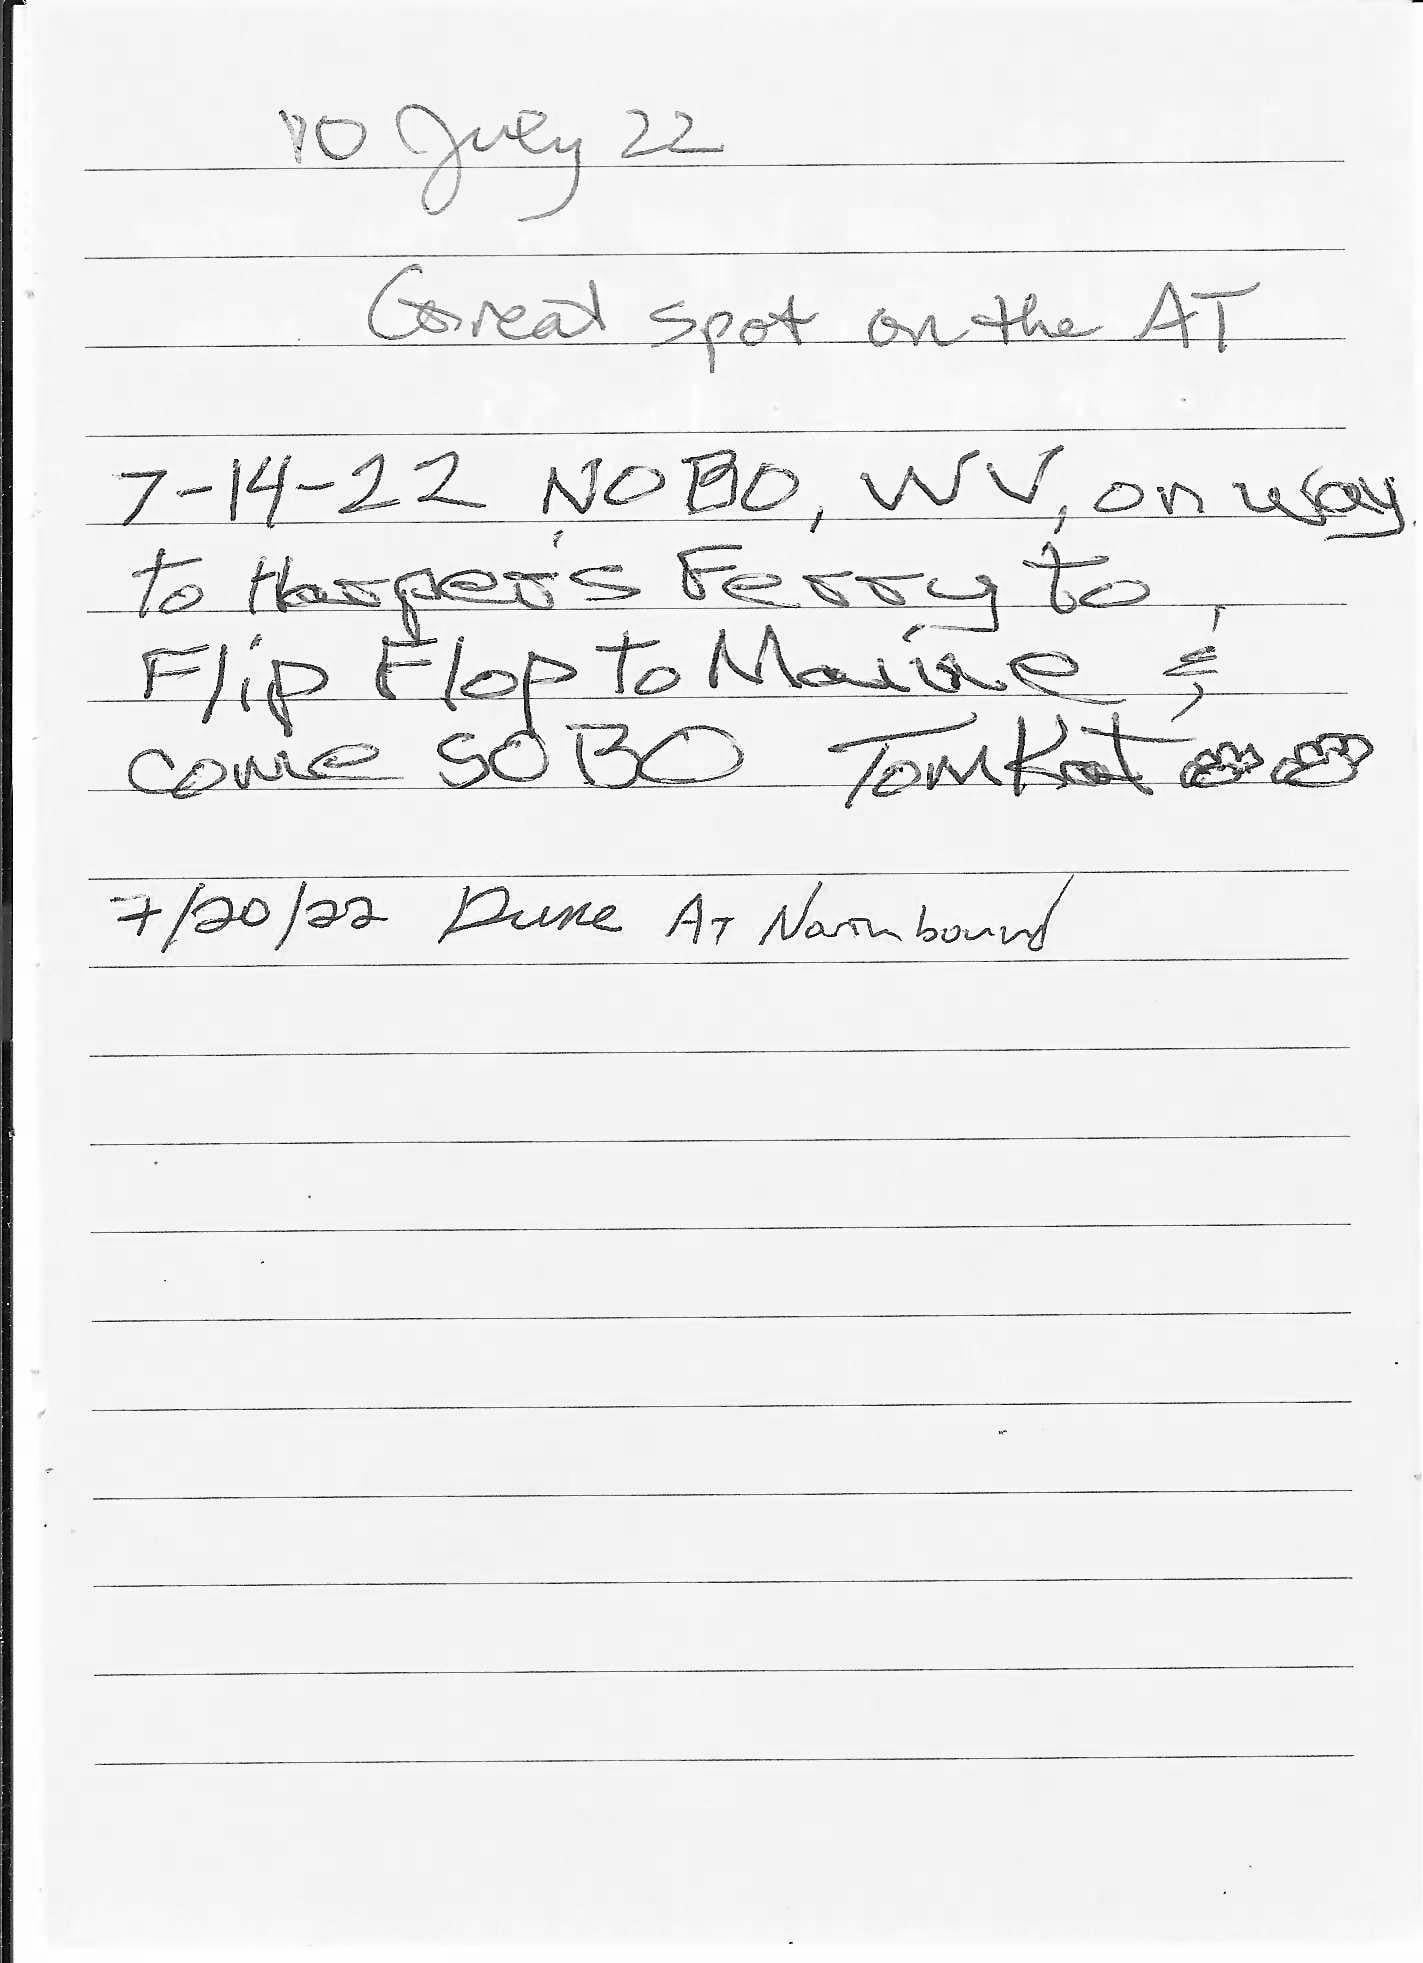 10 July 22
Great spot on the AT
7-14-22 NOBO, WV, on way
to Harper's Ferry to
Flip Flop to Maine &
come SOBO TomKat
7/20/22 AT Northbound